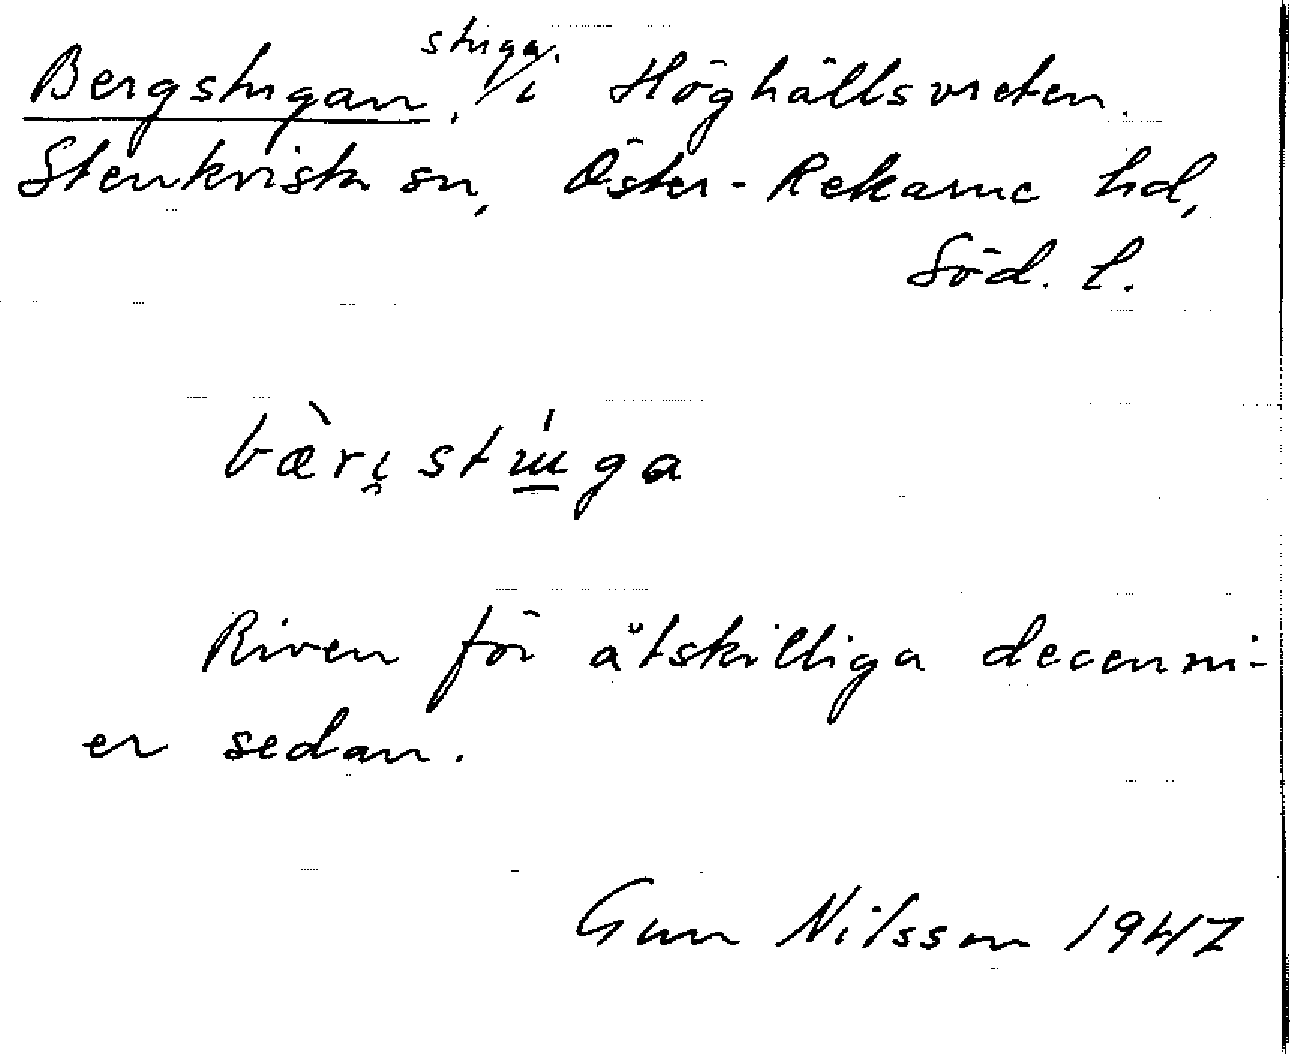 Bergstugan, stuga i Höghällsvreten.
Stenkvista sn, Öster-Rekarne hd,
Söd. l.
bæ̀ri̯stúga
Riven för åtskilliga decenni-
er sedan.
Gun Nilsson 1947